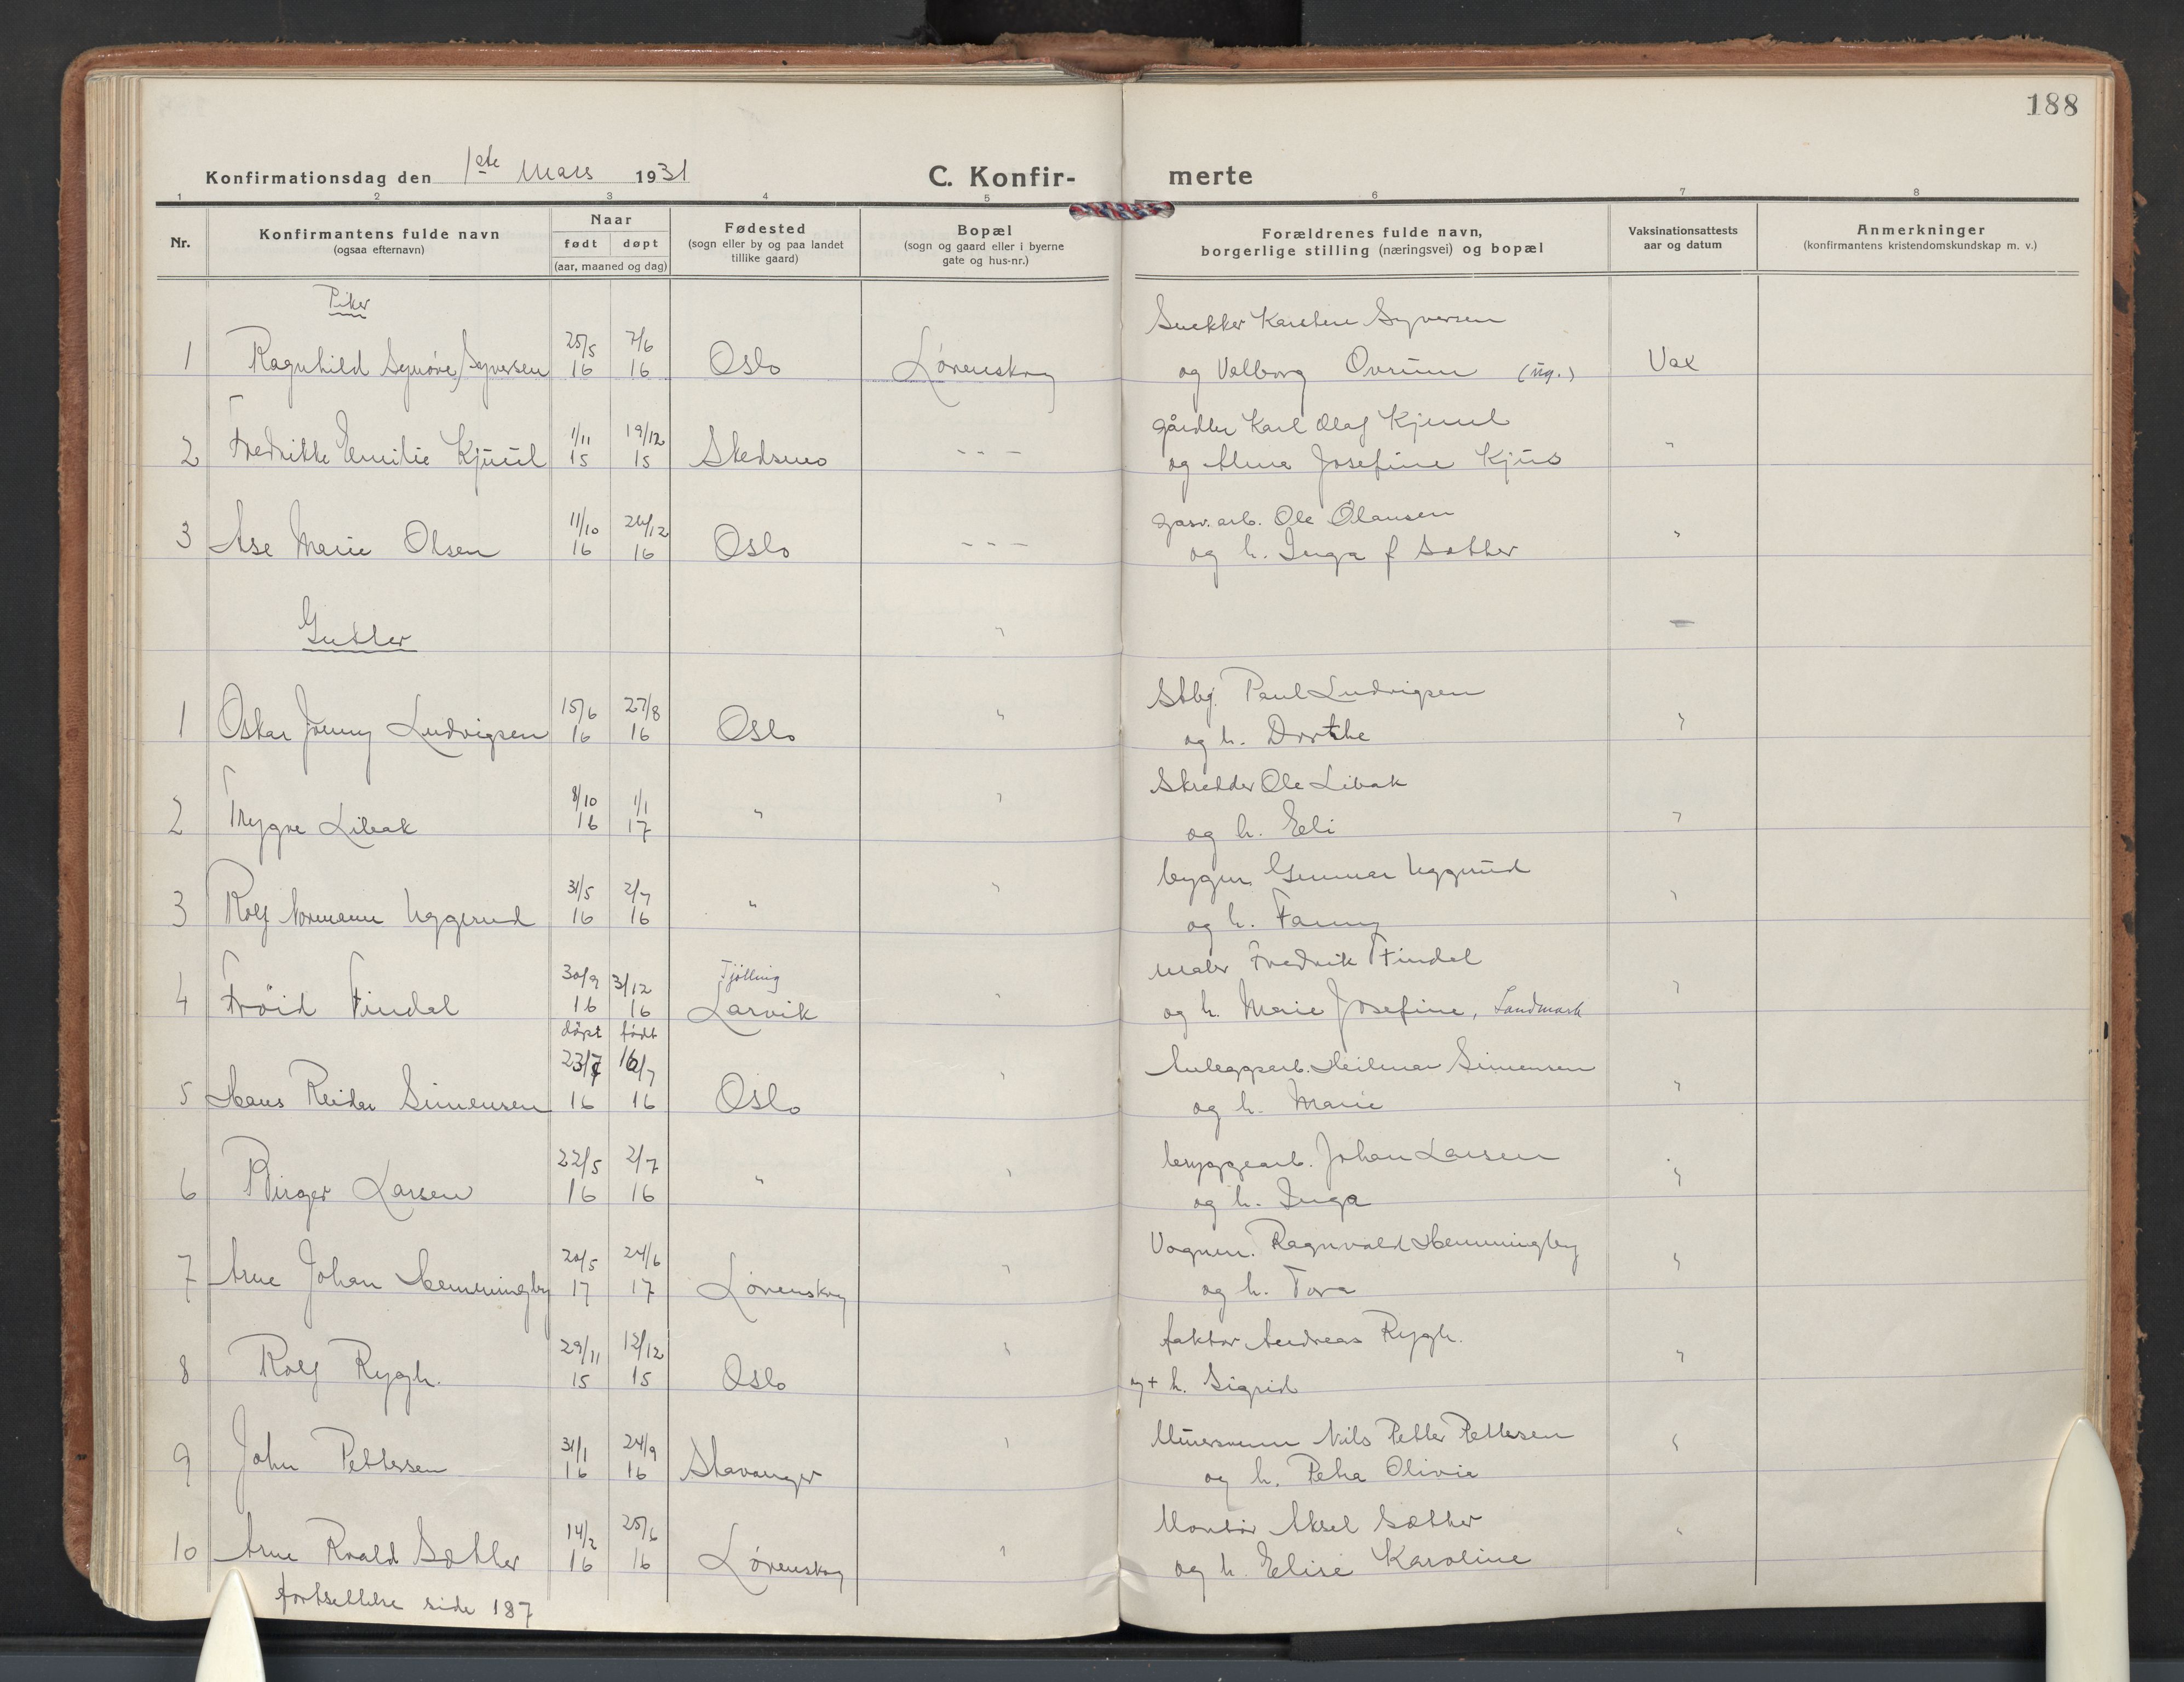 188
Konfirmationsdag den 1ste Mars 1931
C. Konfir-merte
1 2 3 4 5 6 7 8
Nr.
Konfirmantens fulde navn
(ogsaa efternavn)
Naar
født døpt
(aar, maaned og dag)
Fødested
(sogn eller by og paa landet
tillike gaard)
Bopæl
(sogn og gaard eller i byerne
gate og hus-nr.)
Forældrenes fulde navn,
borgerlige stilling (næringsvei) og bopæl
Vaksinationsattests
aar og datum
Anmerkninger
(konfirmantens kristendomskundskap m. v.)
Piker
Snekker Karsten Syversen
25/5 7/6
1 Ragnhild Synøve Syversen 16 16 Oslo Lørenskog og Valborg Ovrum (ug.) Vax
gårdbr Karl Olaf Kjuul
1/11 19/12
2 Fredrikke Emilie Kjuul 15 15 Skedsmo - - - og Alma Josefine Kjus "
gasv. arb. Ole Olausen
11/10 26/12
3 Åse Marie Olsen 16 16 Oslo - - - og h. Inga f Sæther "
Gutter " –
Stbj. Paul Ludvigsen
15/6 27/8
1 Oskar Jonny Ludvigsen 16 16 Oslo " og h. Dorthe "
Skredder Ole Libak
8/10 1/1
2 Trygve Libak 16 17 " " og h. Eli "
bygm. Gunnar Uggerud
31/5 2/7
3 Rolf Normann Uggerud 16 16 " " og h. Fanny "
Maler Fredrik Findal
30/9 3/12 Tjølling
4 Frøid Findal 16 16 Larvik " og h. Marie Josefine, Landmark "
døpt født
23/7 16/7 Anleggsarb. Heilmar Simensen
5 Hans Reidar Simensen 16 16 Oslo " og h. Marie "
bryggearb. Johan Larsen
22/5 2/7
6 Birger Larsen 16 16 " " og h. Inga "
Vognm. Ragnvald Hemmingby
20/5 24/6
7 Arne Johan Hemmingby 17 17 Lørenskog " og h. Tora "
faktor Andreas Rygh.
29/11 12/12
8 Rolf Rygh. 15 15 Oslo " og + h. Sigrid "
Murersvenn Nils Petter Pettersen
31/1 24/9
9 John Pettersen 16 16 Stavanger " og h. Petra Olivia "
Montør Aksel Sæther
14/2 25/6
10 Arne Roald Sæther 16 16 Lørenskog " og h. Elise Karoline "
fortsettelse side 187